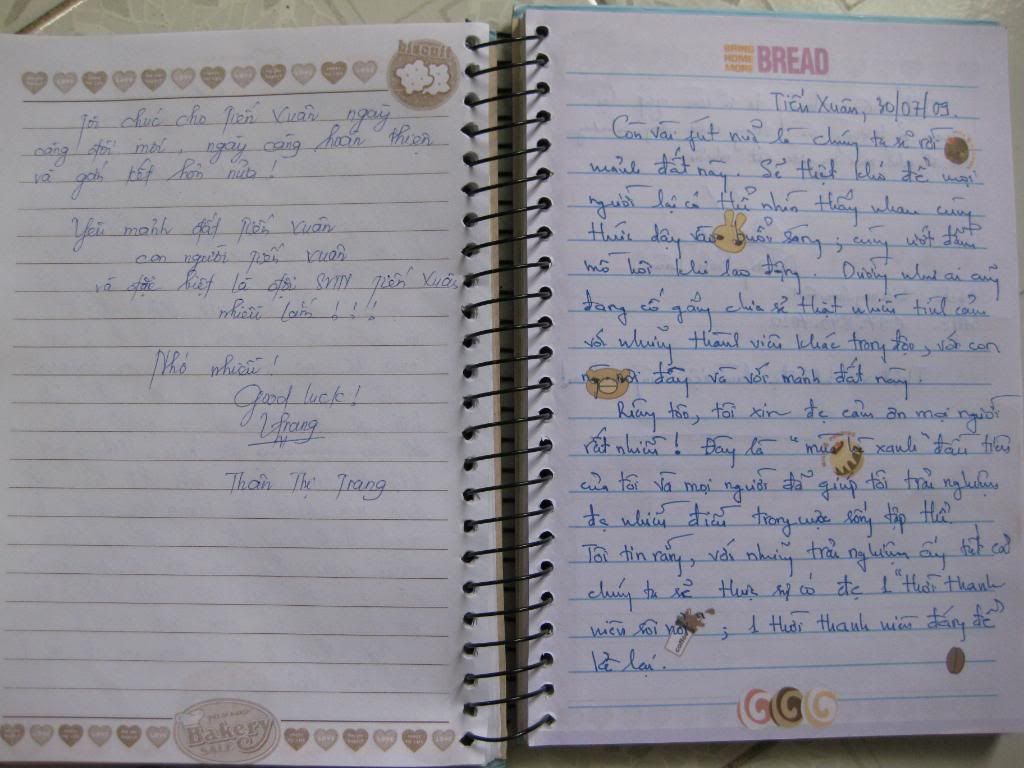 biscuit
Tôi chúc cho Tiến Xuân ngày
càng đổi mới, ngày càng hoàn thiện
và gắn kết hơn nữa!
Yêu mảnh đất Tiến Xuân
con người Tiến Xuân
và đặc biệt là đội SVTN Tiến Xuân
nhiều lắm!!!
Nhớ nhiều!
Good luck!
Trang
Thân Thị Trang
Bakery
SALE
BRING HOME MORE BREAD
Tiến Xuân, 30/07/09.
Còn vài phút nữa là chúng ta sẽ rời
mảnh đất này. Sẽ thật khó để mọi
người lại có thể nhìn thấy nhau cùng
thức dậy vào buổi sáng; cùng ướt đẫm
mồ hôi khi lao động. Dường như ai cũng
đang cố gắng chia sẻ thật nhiều tình cảm
với những thành viên khác trong đội, với con
người ở đây và với mảnh đất này.
Riêng tôi, tôi xin đc cảm ơn mọi người
rất nhiều! Đây là "mùa hè xanh" đầu tiên
của tôi và mọi người đã giúp tôi trải nghiệm
đc nhiều điều trong cuộc sống tập thể.
Tôi tin rằng, với những trải nghiệm ấy tất cả
chúng ta sẽ thực sự có đc 1 "thời thanh
niên sôi nổi"; 1 thời thanh niên đáng để
kể lại.
coffee